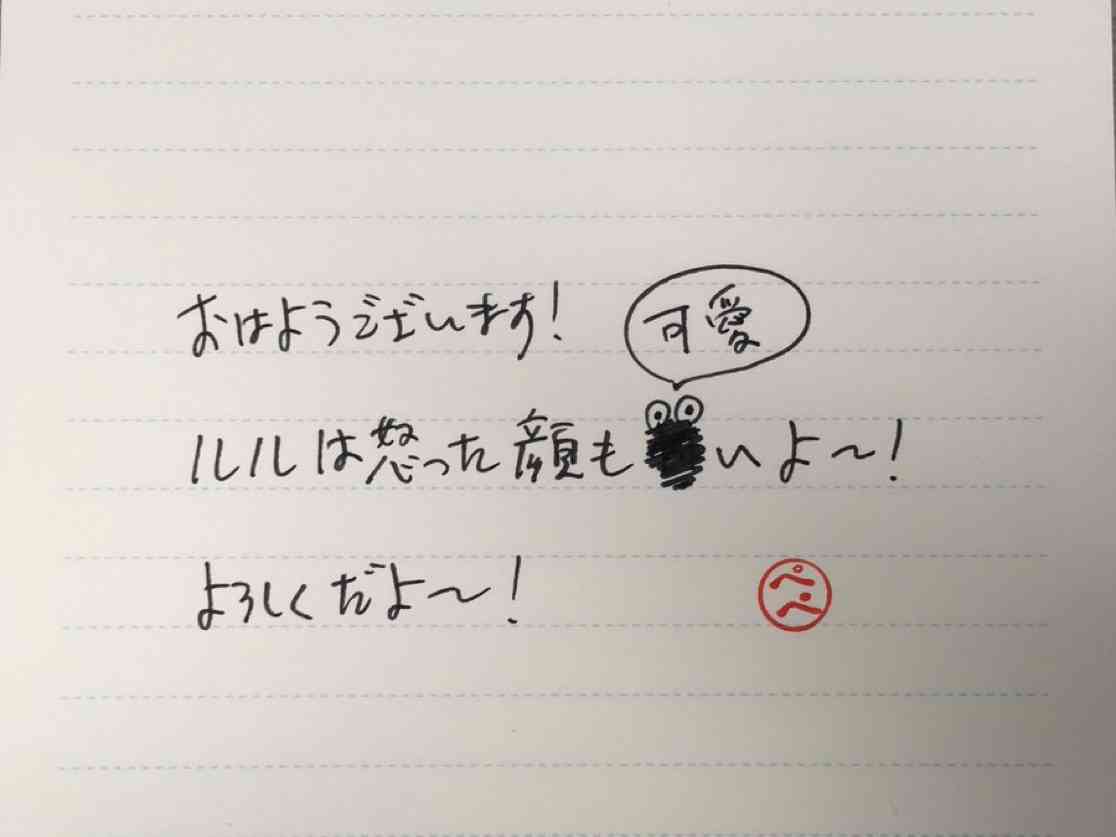 おはようございます!
可愛
ルルは怒った顔もいよ〜!
よろしくだよ〜!
ぺぺ